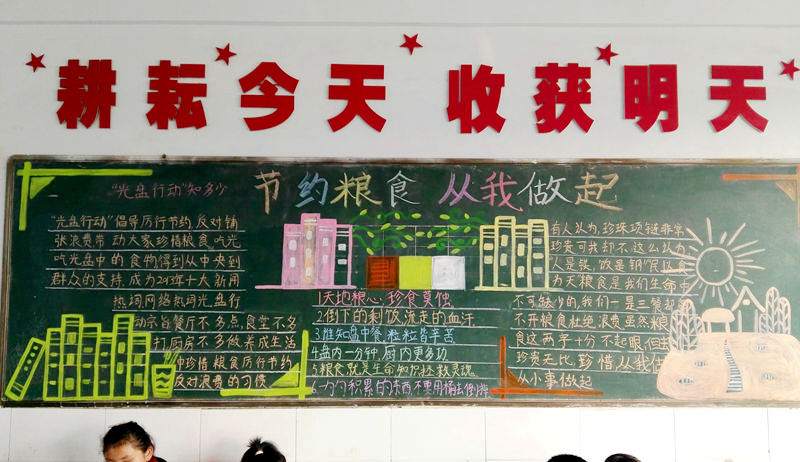 耕耘今天 收获明天
节约粮食 从我做起
"光盘行动"知多少
"光盘行动"倡导厉行节约,反对铺
张浪费带动大家珍惜粮食吃光
吃光盘中的食物得到从中央到
群众的支持,成为2013年十大新用
热词网络热词光盘行
动宗旨餐厅不多点,食堂不多
打厨房不多做养成生活
中珍惜粮食厉行节约
反对浪费的习惯
1天地粮心,珍食莫蚀
2倒下的剩饭流走的血汗
3谁知盘中餐粒粒皆辛苦
4盘内一分钟,厨内更多功
5粮食就是生命知识拯救灵魂
6一勺勺积累的东西不要用桶去倒掉
有人认为,珍珠项链非常
珍贵可我却不这么认为
人是铁,饭是钢"民以食
为天粮食是我们生命中
不可缺少的我们一旦三餐都离
不开粮食杜绝浪费虽然粮
食这两字十分不起眼但
珍贵无比,珍惜从我做
从小事做起